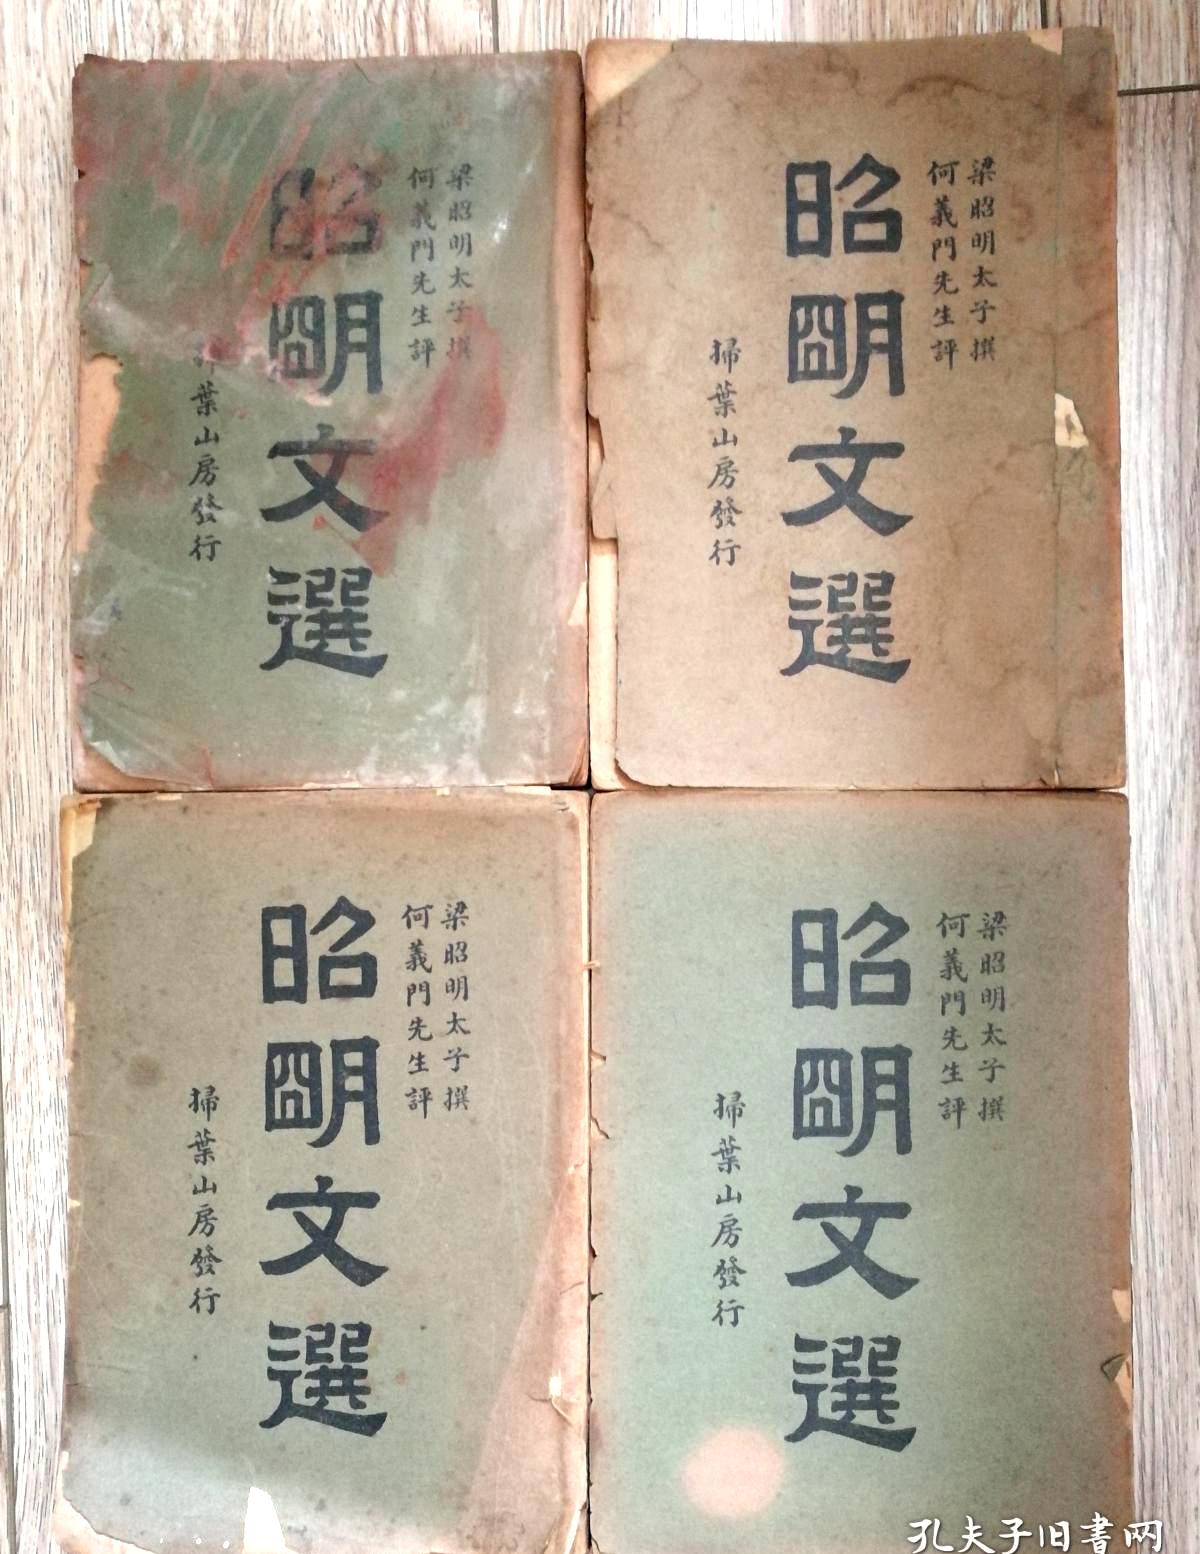 梁昭明太子撰
何義門先生評
昭明文選
掃葉山房發行
梁昭明太子撰
何義門先生評
昭明文選
掃葉山房發行
梁昭明太子撰
何義門先生評
昭明文選
掃葉山房發行
梁昭明太子撰
何義門先生評
昭明文選
掃葉山房發行
孔夫子旧書网